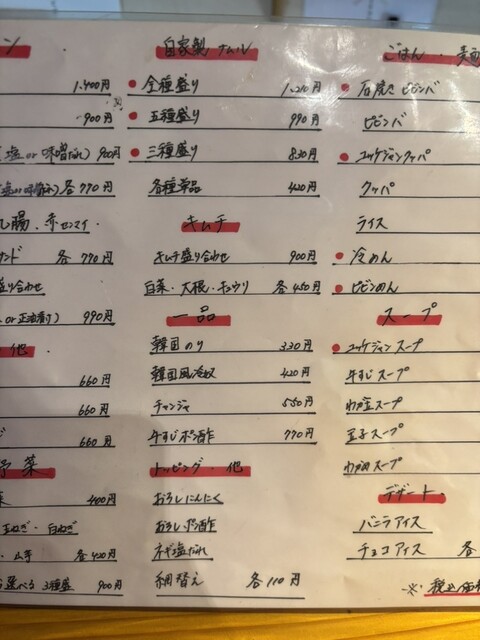 ン
1,400円
900円
(塩 or 味噌だれ) 900円
各770円
腸・赤センマイ
各 770円
盛り合わせ
or 正油漬け) 990円
他
660円
660円
660円
野菜
400円
玉ねぎ・白ねぎ
・山芋 各420円
選べる 3種盛 900円
自家製 ナムル
全種盛り 1,210円
五種盛り 990円
三種盛り 830円
各種単品 420円
キムチ
キムチ盛り合わせ 900円
白菜・大根・キュウリ 各450円
一品
韓国のり 330円
韓国風冷奴 420円
チャンジャ 550円
牛すじポン酢 770円
トッピング・他
おろしにんにく
おろしポン酢
ネギ塩だれ
網替え 各110円
ごはん・麺
石焼きビビンバ
ビビンバ
ユッケジャンクッパ
クッパ
ライス
冷めん
ビビンめん
スープ
ユッケジャンスープ
牛すじスープ
わか玉スープ
玉子スープ
わかめスープ
デザート
バニラアイス
チョコアイス 各
※税込価格